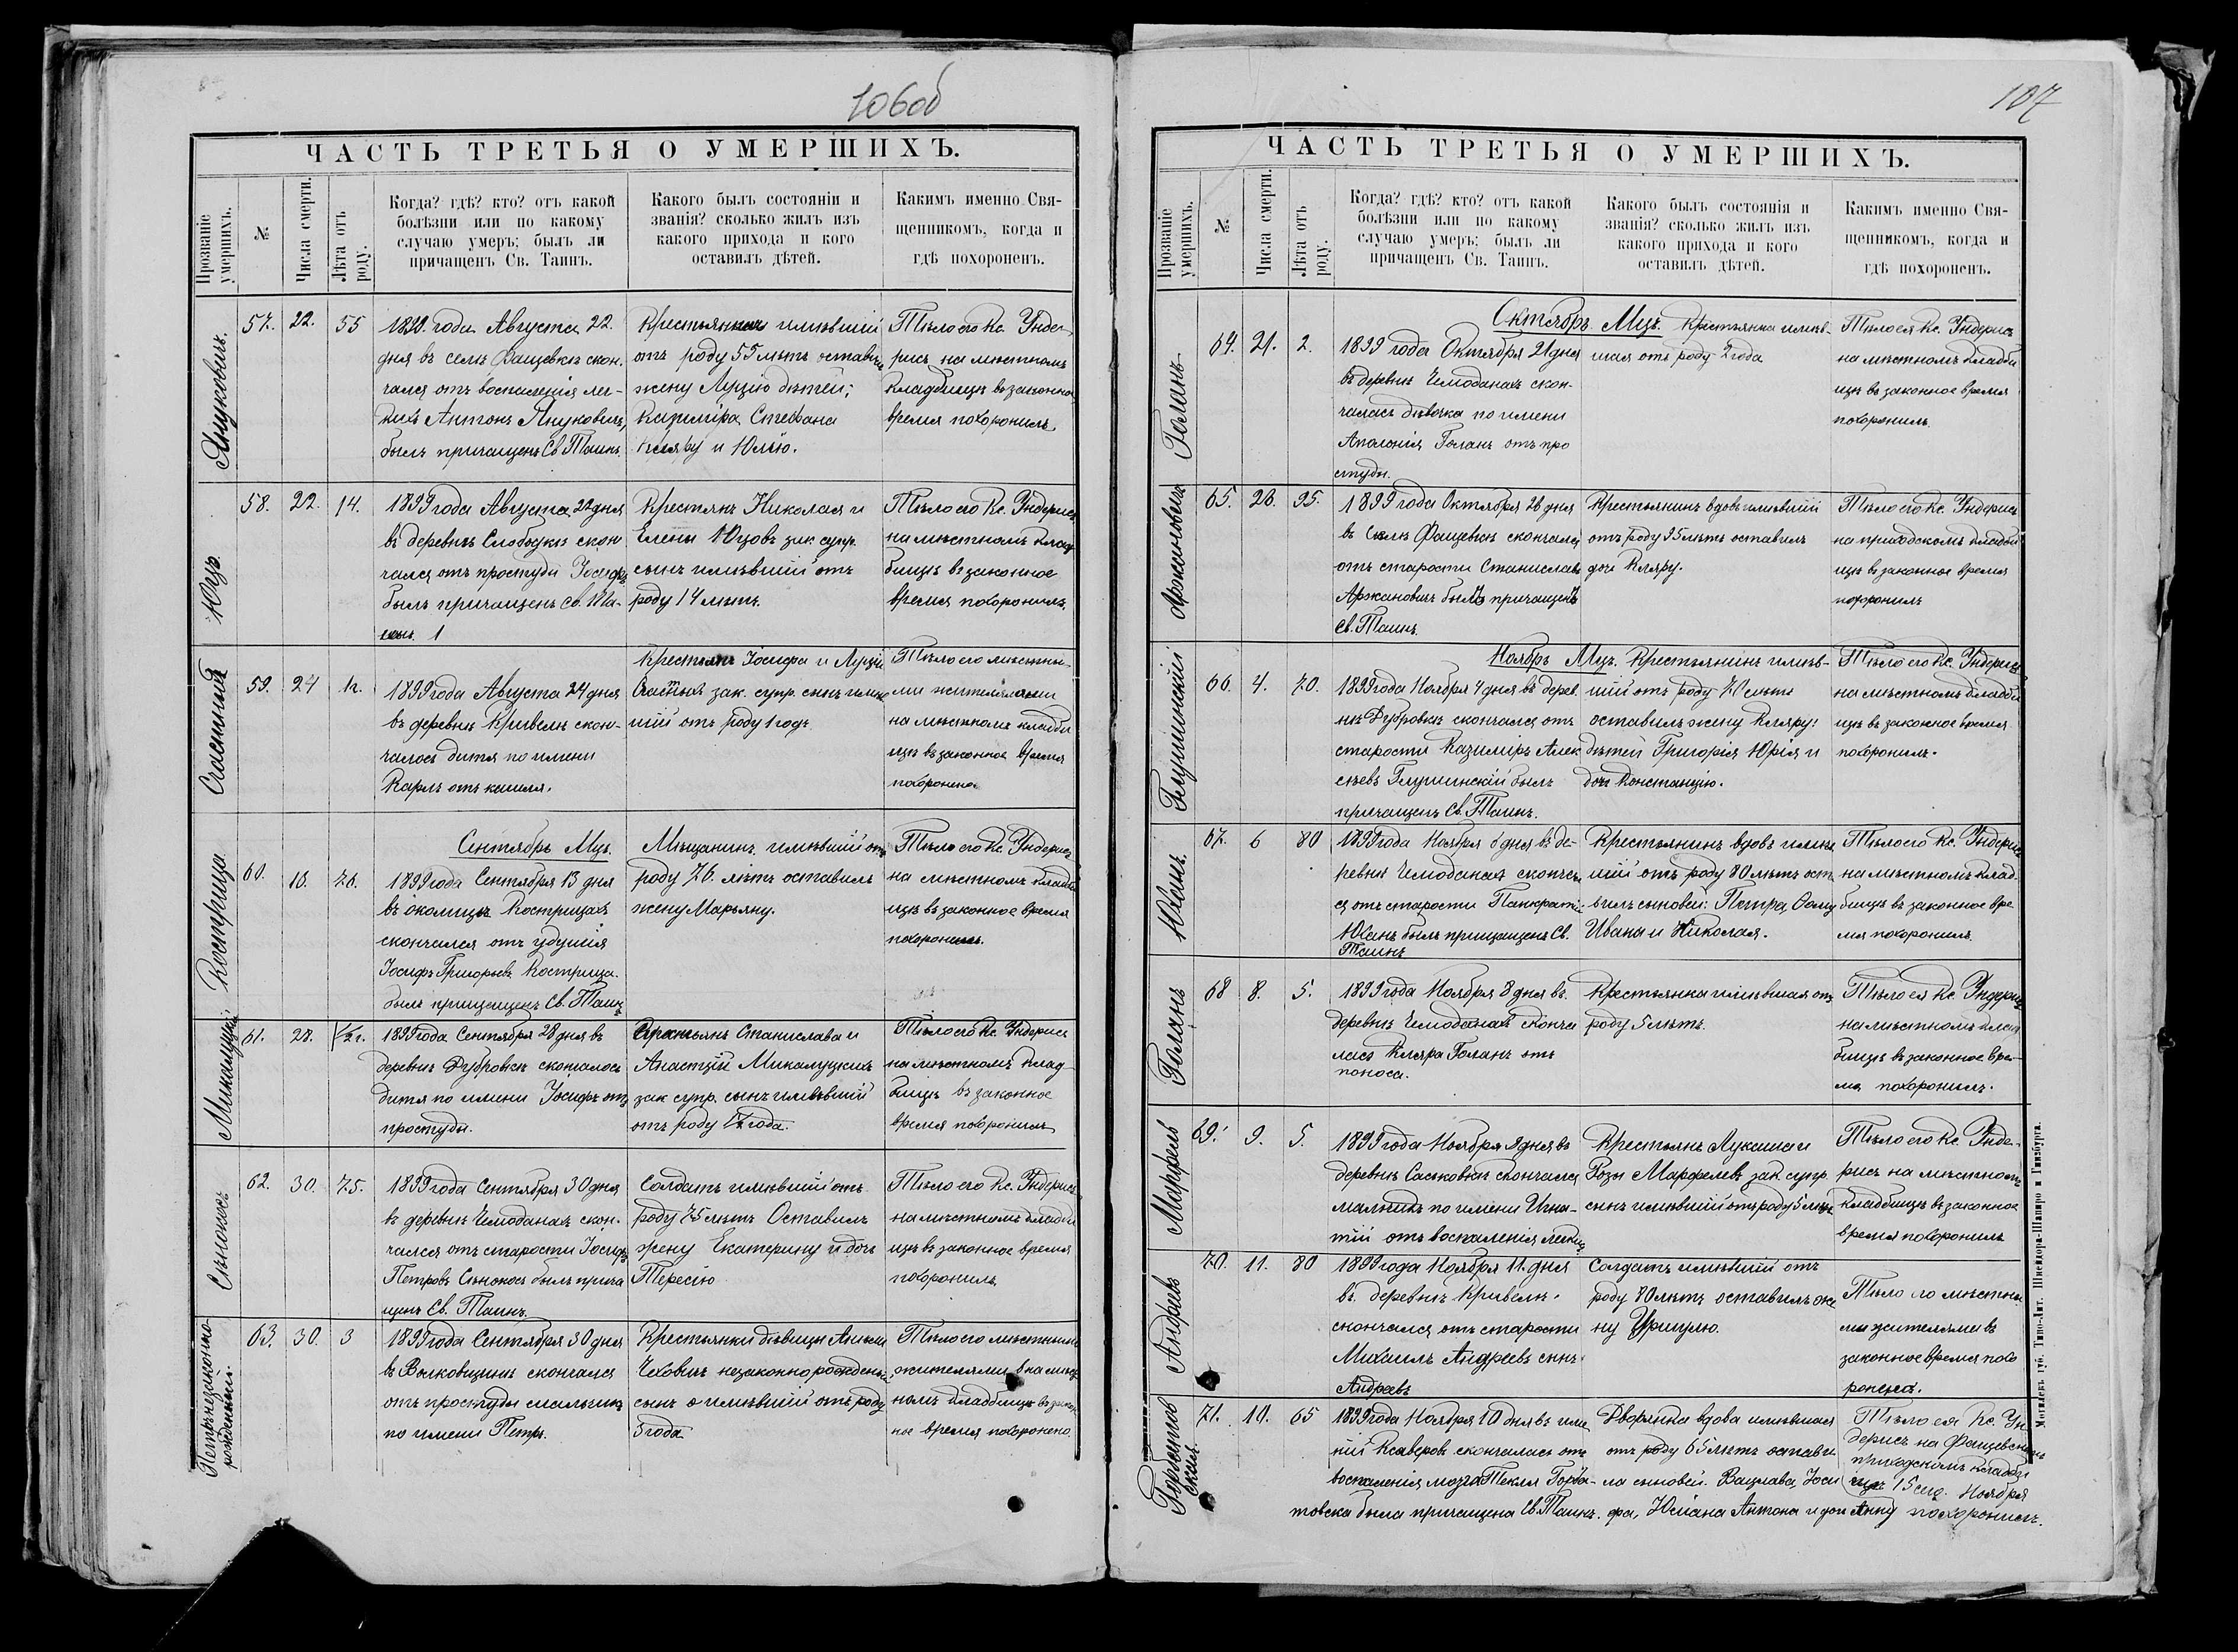 106об
ЧАСТЬ ТРЕТЬЯ О УМЕРШИХЪ.
Прозваніе умершихъ.
№
Числа смерти.
Лѣта отъ роду.
Когда? гдѣ? кто? отъ какой
болѣзни или по какому
случаю умеръ; былъ ли
причащенъ Св. Таинъ.
Какого былъ состояніи и
званія? сколько жилъ изъ
какого прихода и кого
оставилъ дѣтей.
Какимъ именно Свя-
щенникомъ, когда и
гдѣ похороненъ.
Януковичъ.
57. 22. 55
1899 года Августа 22.
дня въ селѣ Фащевкѣ скон.
чался отъ воспаленія лег-
кихъ Антонъ Януковичъ,
былъ причащенъ Св Таинъ.
Крестьянинъ имѣвшій
отъ роду 55 лѣтъ оставилъ
жену Луцію дѣтей;
Казиміра, Стефана
и Юлію.
Тѣло его Кс. Унде-
рисъ на мѣстномъ
кладбищѣ въ законное
время похоронилъ.
Юцъ.
58. 22. 14.
1899 года Августа 22 дня
въ деревнѣ Слободкѣ скон
чался отъ простуды Іосифъ
былъ причащенъ Св. Та-
инъ.
Крестьянъ Николая и
Елены Юцовъ зак. супр.
сынъ имѣвшій отъ
роду 14 лѣтъ.
Тѣло его Кс. Ундерисъ
на мѣстномъ клад-
бищѣ въ законное
время похоронилъ.
Счастный
59. 24 1г.
1899 года Августа 24 дня
въ деревнѣ Кривелѣ скон-
чалось дитя по имени
Карлъ отъ кашля.
Крестьянъ Іосифа и Луціи
Счастныхъ зак. супр. сынъ имѣв
шій отъ роду 1 годъ
Тѣло его мѣстны-
ми жителями
на мѣстномъ кладби
щѣ въ законное время
похоронено.
Кострица
60. 13. 76.
Сентябрь Мцъ.
1899 года Сентября 13 дня
въ околицѣ Кострицахъ
скончался отъ удушія
Іосифъ Григорьевъ Кострица.
былъ причащенъ Св. Таинъ
Мѣщанинъ имѣвшій отъ
роду 76. лѣтъ оставилъ
жену Марьяну.
Тѣло его Кс. Ундерисъ
на мѣстномъ кладби
щѣ въ законное время
похоронилъ.
Микалуцкій
61. 28. 1/2 г.
1899 года Сентября 28 дня въ
деревнѣ Дубровкѣ скончалось
дитя по имени Іосифъ отъ
простуды.
Крестьянъ Станислава и
Анастціи Микалуцкихъ
зак супр. сынъ имѣвшій
отъ роду 1/2 года.
Тѣло его Кс. Ундерисъ
на мѣстномъ клад-
бищѣ въ законное
время похоронилъ
Сѣнокосъ
62. 30. 75.
1899 года Сентября 30 дня
въ деревнѣ Чемоданахъ скон.
чался отъ старости Іосифъ
Петровъ Сѣнокосъ былъ прича
щенъ Св. Таинъ.
Солдатъ имѣвшій отъ
роду 75 лѣтъ Оставилъ
жену Екатерину и дочь
Тересію
Тѣло его Кс. Ундерисъ
на мѣстномъ кладби
щѣ въ законное время
похоронилъ
Петръ незаконно-
рожденный.
63. 30. 3
1899 года Сентября 30 дня
въ Волковщинѣ скончался
отъ простуды мальчикъ
по имени Петръ.
Крестьянки дѣвицы
Чеховичъ незаконнорожденый
сынъ имѣвшій отъ роду
3 года.
Тѣло его мѣстными
жителями на мѣст
номъ кладбищѣ въ закон
ное время похоронено
107
ЧАСТЬ ТРЕТЬЯ О УМЕРШИХЪ.
Прозваніе умершихъ.
№
Числа смерти.
Лѣта отъ роду.
Когда? гдѣ? кто? отъ какой
болѣзни или по какому
случаю умеръ; былъ ли
причащенъ Св. Таинъ.
Какого былъ состоянія и
званія? сколько жилъ изъ
какого прихода и кого
оставилъ дѣтей.
Какимъ именно Свя-
щенникомъ, когда и
гдѣ похороненъ.
Голанъ
64. 21. 2.
Октябрь Мцъ.
1899 года Октября 21 дня
въ деревнѣ Чемоданахъ скон-
чалась дѣвочка по имени
Аполонія Голанъ отъ про
студы.
Крестьянка имѣв-
шая отъ роду 2 года
Тѣло ея Кс. Ундерисъ
на мѣстномъ кладби
щѣ въ законное время
похоронилъ.
Аржановичъ
65. 26. 95.
1899 года Октября 26 дня
въ Селѣ Фащевкѣ скончался
отъ старости Станиславъ
Аржановичъ былъ причащенъ
Св. Таинъ.
Крестьянинъ вдовъ имѣвшій
отъ роду 95 лѣтъ оставилъ
доч Кляру.
Тѣло его Кс. Ундерисъ
на приходскомъ кладби
щѣ въ законное время
похоронилъ
Глушинскій
66. 4. 70.
Ноябрь Мцъ.
1899 года Ноября 4 дня въ дерев.
нѣ Дубровкѣ скончался отъ
старости Казиміръ Алек
сѣевъ Глушинскій былъ
причащенъ Св. Таинъ.
Крестьянинъ имѣв-
шій отъ роду 70 лѣтъ
оставилъ жену Кляру:
дѣтей Григорія Юрія и
доч Констанцію.
Тѣло его Кс. Ундерисъ
на мѣстномъ кладби
щѣ въ законное время
похоронилъ.
Юханъ.
67. 6 80
1899 года Ноября 6 дня въ де-
ревнѣ Чемоданахъ скончал
ся отъ старости Панкратій
Юханъ былъ причащенъ Св.
Таинъ
Крестьянинъ вдовъ имѣв
шій отъ роду 80 лѣтъ оста
вилъ сыновей: Петра, Фому
Ивана и Николая.
Тѣло его Кс. Ундерисъ
на мѣстномъ клад-
бищѣ въ законное вре
мя похоронилъ.
Голанъ
68 8. 5.
1899 года Ноября 8 дня въ
деревнѣ Чемоданахъ сконча
лась Кляра Голанъ отъ
поноса.
Крестьянка имѣвшая отъ
роду 5 лѣтъ.
Тѣло ея Кс. Ундерисъ
на мѣстномъ клад
бищѣ въ законное вре-
мя похоронилъ.
Марфель
69. 9. 5.
1899 года Ноября 9 дня въ
деревнѣ Саськовкѣ скончался
мальчикъ по имени Игна-
тій отъ воспаленія легких
Крестьянъ Лукаша и
Розы Марфелевъ зак. супр.
сынъ имѣвшій отъ роду 5 лѣтъ
Тѣло его Кс. Унде-
рисъ на мѣстномъ
кладбищѣ въ законное
время похоронилъ
Андреевъ
70. 11. 80
1899 года Ноября 11. дня
въ деревнѣ Кривелѣ.
скончался отъ старости
Михаилъ Андреевъ сынъ
Андреевъ
Солдатъ имѣвшій отъ
роду 80 лѣтъ оставилъ же
ну
Тѣло го мѣстны
ми жителями въ
законное время похо
ронена.
Горбатовская
71. 10. 65
1899 года Ноября 10 дня въ имѣ
ніи Ксаверовъ скончалась отъ
воспаленія мозга Текля Горба-
товска была причащена Св. Таинъ.
Дворянка вдова имѣвшая
отъ роду 65 лѣтъ остави
ла сыновей. Вацлава, Іоси
фа, Юліана Антона и доч Анну
Тѣло ея Кс. Ун
дерисъ на Фащевскомъ
приходскомъ кладби
щѣ 15 сего Ноября
похоронилъ.
Могилевъ губ. Типо-Лит. Шнейдера-Шапиро и Гинзбурга.